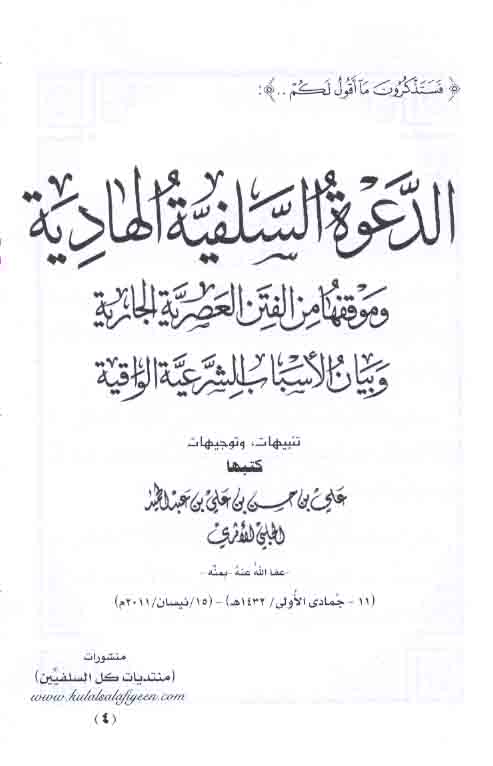 ﴿ فَسَتَذْكُرُونَ مَا أَقُولُ لَكُمْ .. ﴾:
الدَّعْوَةُ السَّلَفِيَّةُ الهَادِيَةُ
وَمَوْقِفُهَا مِنَ الفِتَنِ العَصْرِيَّةِ الجَارِيَةِ
وَبَيَانُ الأَسْبَابِ الشَّرْعِيَّةِ الوَاقِيَةِ
تنبيهات، وتوجيهات
كتبها
علي بن حسن بن علي بن عبد الحميد
الحلبي الأثري
-عفا اللهُ عنهُ بمنّه-
(١١ - جُمادى الأُولى/ ١٤٣٢هـ) - (١٥/ نيسان/ ٢٠١١م)
منشورات
(منتديات كل السلفيِّين)
www.kulalsalafiyeen.com
(٤)